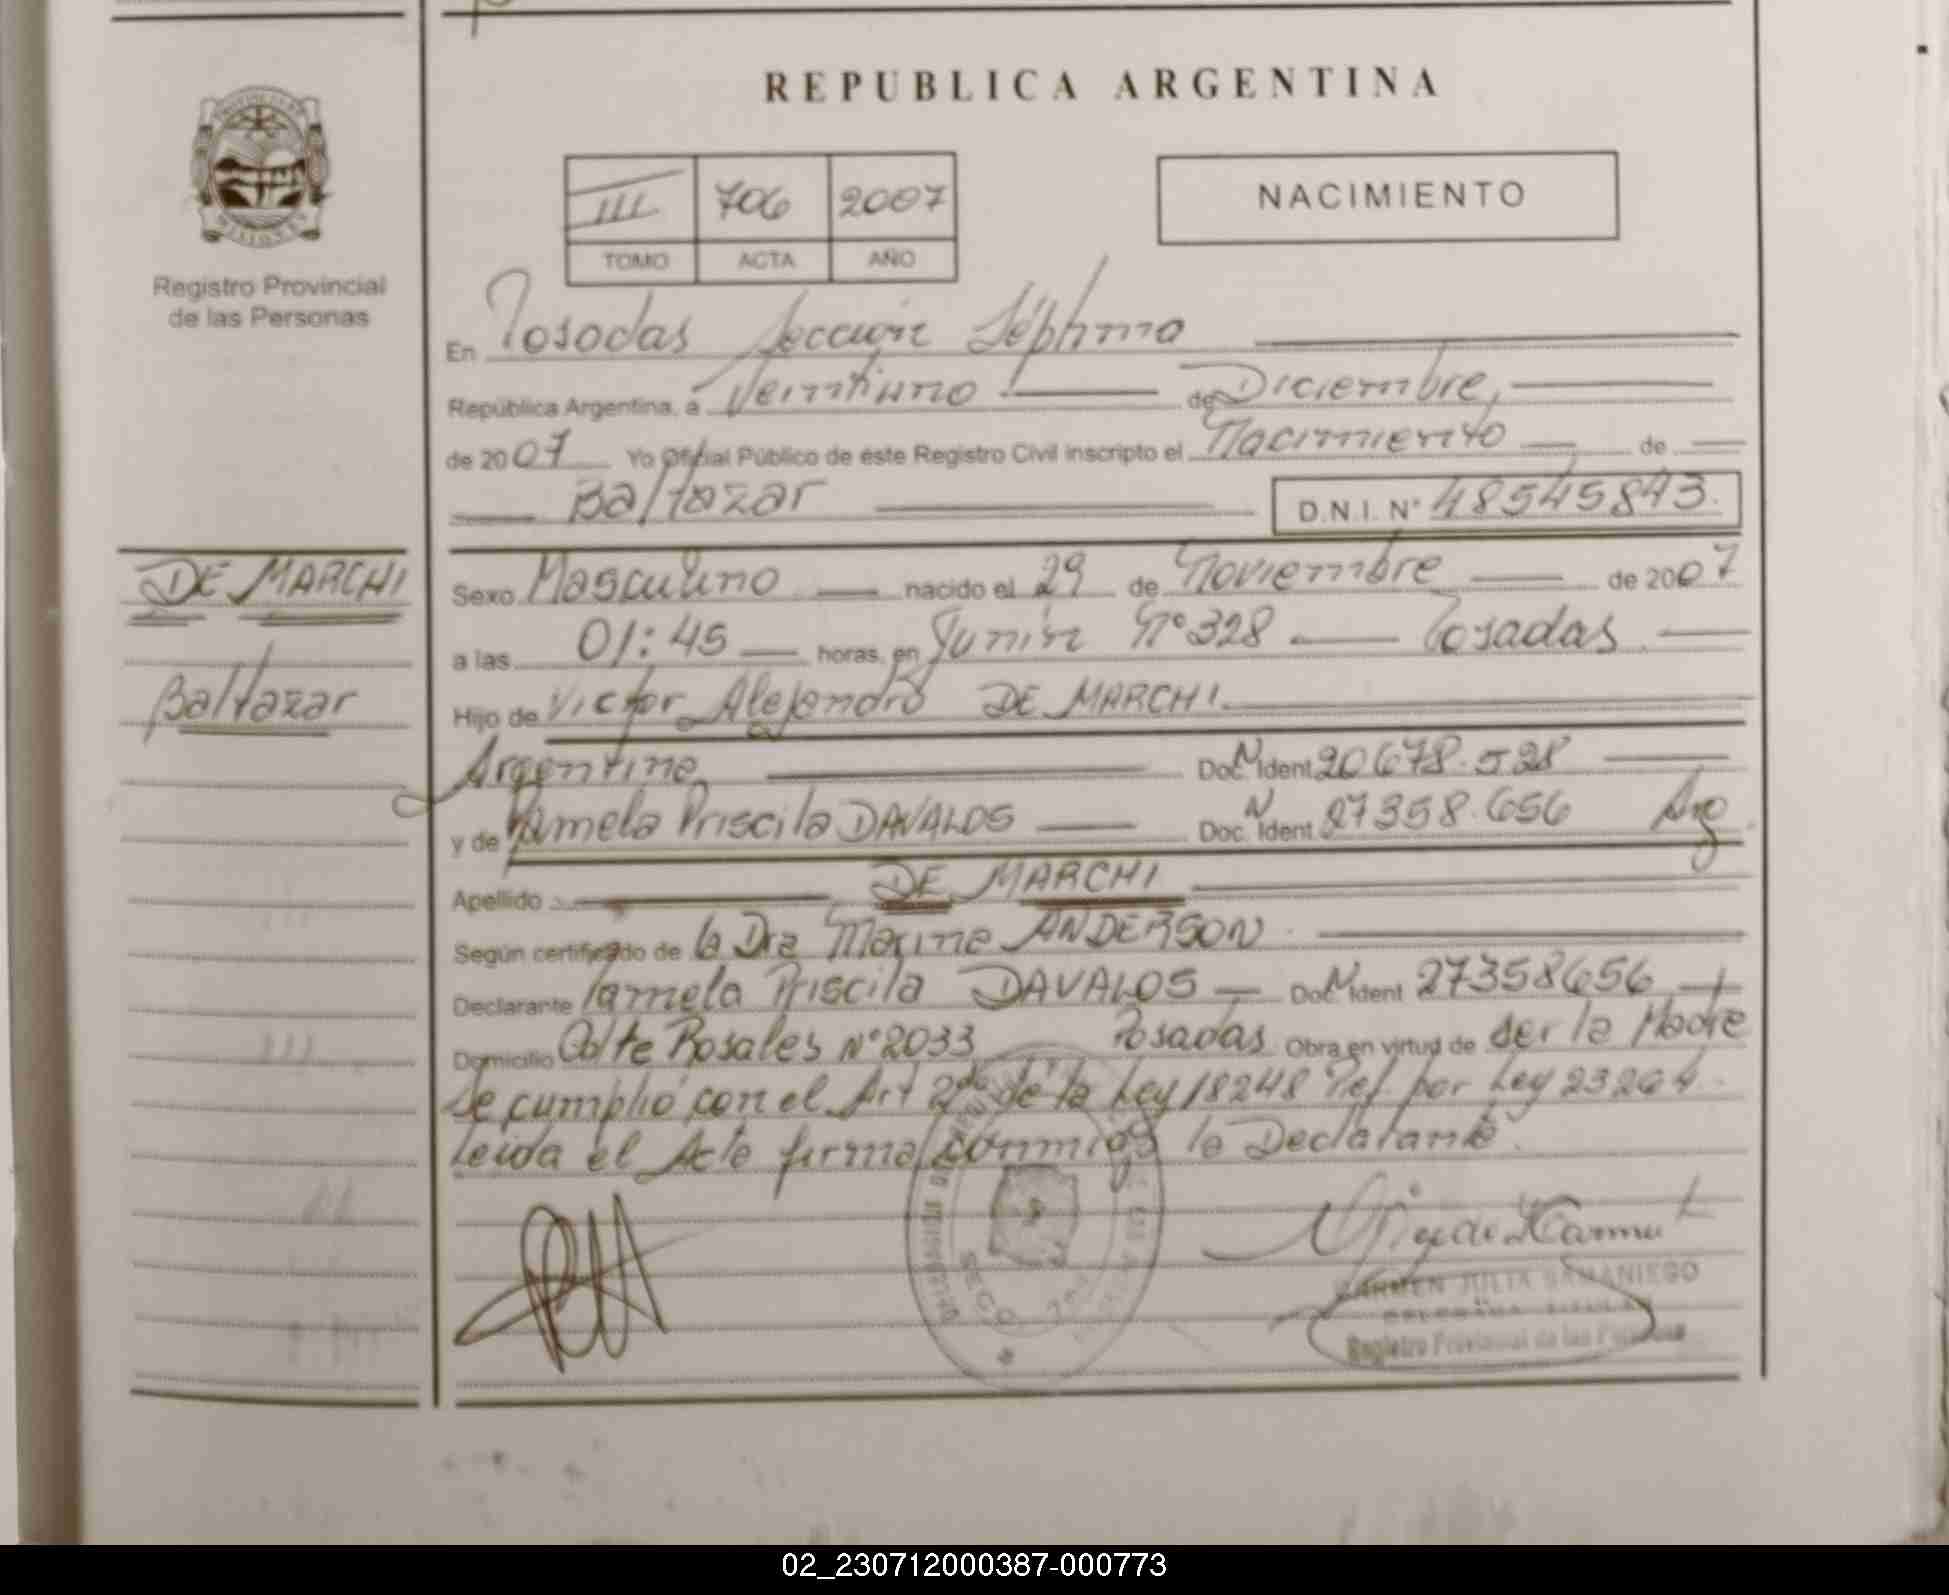 REPUBLICA ARGENTINA
III 706 2007
TOMO ACTA AÑO
NACIMIENTO
Registro Provincial
de las Personas
En Posadas Sección Séptima
República Argentina, a Veintiuno de Diciembre,
de 2007 Yo Oficial Público de éste Registro Civil inscripto el Nacimiento de
Baltazar D.N.I. N° 48545843.
DE MARCHI
Baltazar
Sexo Masculino nacido el 29 de Noviembre de 2007
a las 01:45 horas, en Junín N° 328 Posadas
Hijo de Victor Alejandro DE MARCHI
Argentina Doc. N Ident 20678.528
y de Pamela Priscila DAVALOS Doc. N Ident. 27358.656 Arg
Apellido DE MARCHI
Según certificado de la Dra Marina ANDERSON
Declarante Pamela Priscila DAVALOS Doc. N Ident 27358656
Domicilio Cdte Rosales N° 2033 Posadas Obra en virtud de ser la Madre
Se cumplió con el Art 2do de la Ley 18248 Ref. por Ley 23264.
Leída el Acta firma conmigo la Declarante.
CARMEN JULIA SAMANIEGO
DELEGADA TITULAR
Registro Provincial de las Personas
02_230712000387-000773